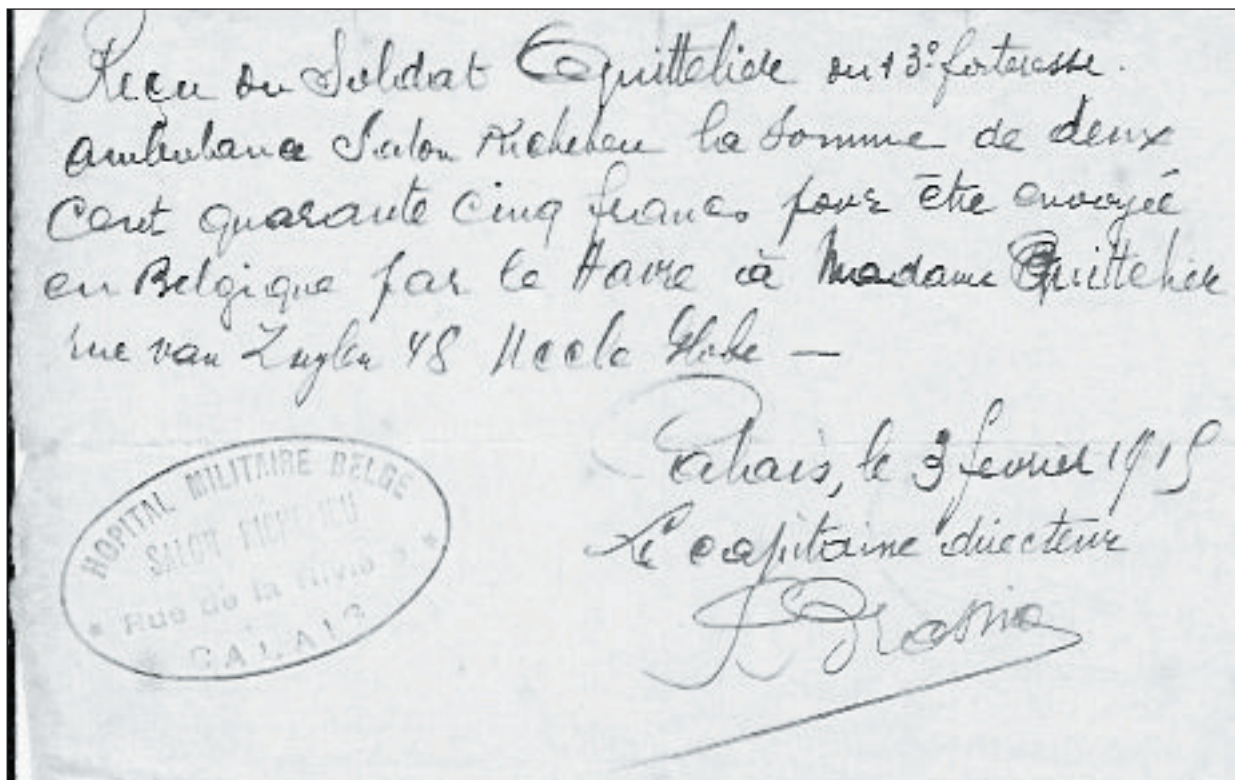 Reçu du Soldat Equittelier du 13e forteresse.
ambulance Salon Richelieu la somme de deux
Cent quarante cinq francs pour être envoyée
en Belgique par le Havre à Madame Equittelier
rue van Zuylen 48 Uccle Globe —
Calais, le 3 fevrier 1915
Le capitaine directeur
HOPITAL MILITAIRE BELGE
SALON RICHELIEU
* Rue de la *
CALAIS